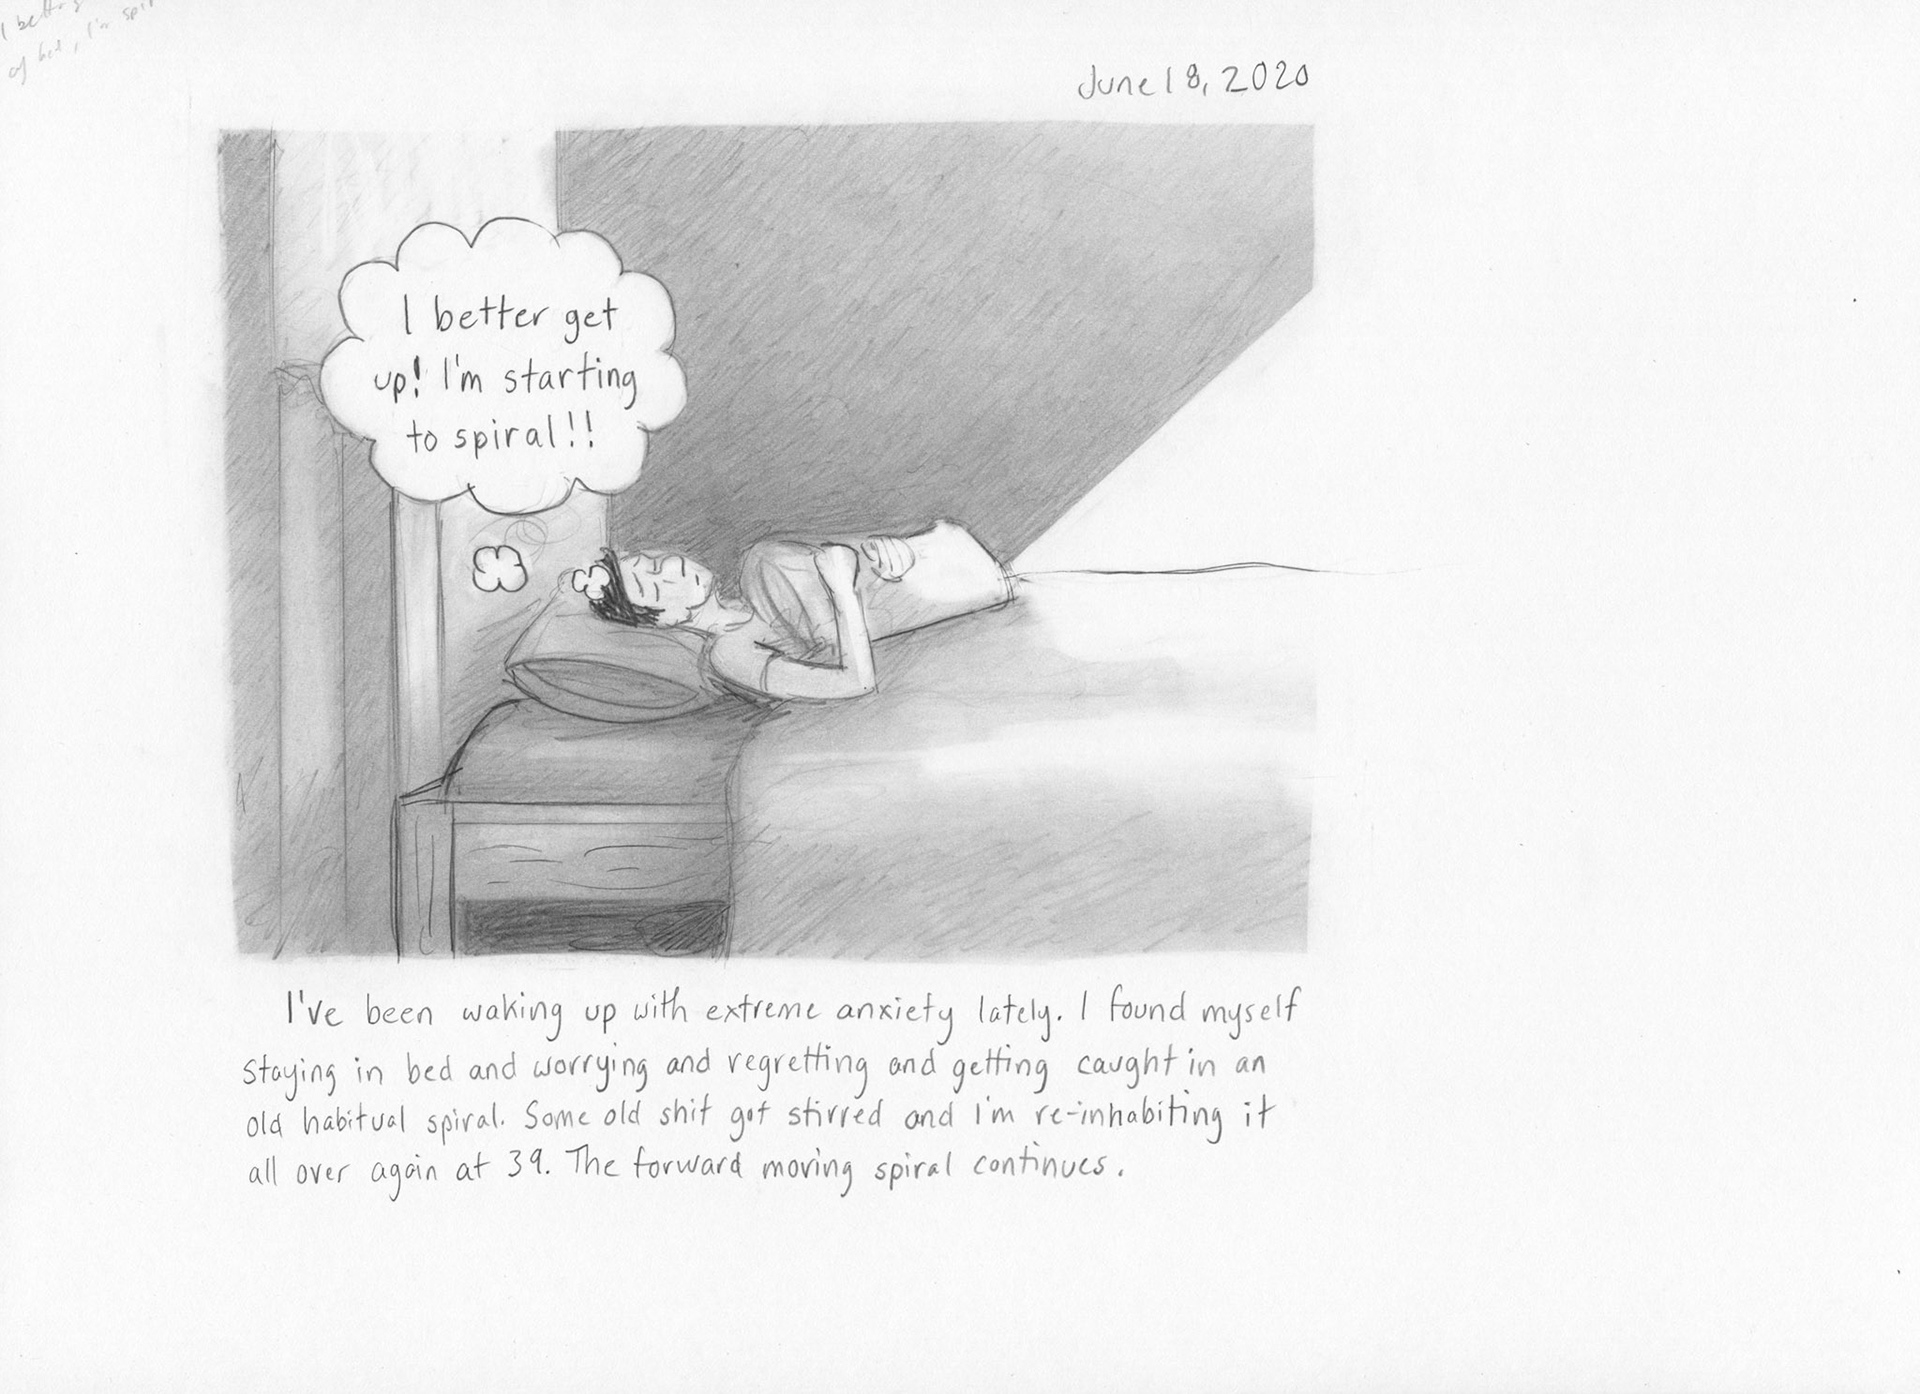 I better
of bed, I'm
June 18, 2020
I better get
up! I'm starting
to spiral!!
I've been waking up with extreme anxiety lately. I found myself
staying in bed and worrying and regretting and getting caught in an
old habitual spiral. Some old shit got stirred and I'm re-inhabiting it
all over again at 39. The forward moving spiral continues.